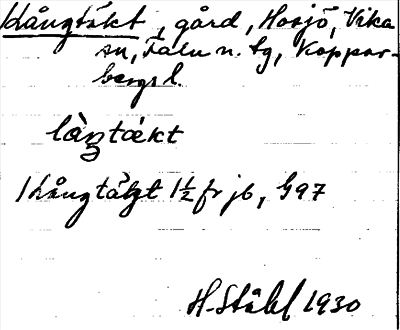 Långtäkt, gård, Hosjö, Vika
sn, Falu n. tg, Koppar-
bergs l.
làŋtækt
Långtäkt 1½ fr jb, G97
H. Ståhl 1930